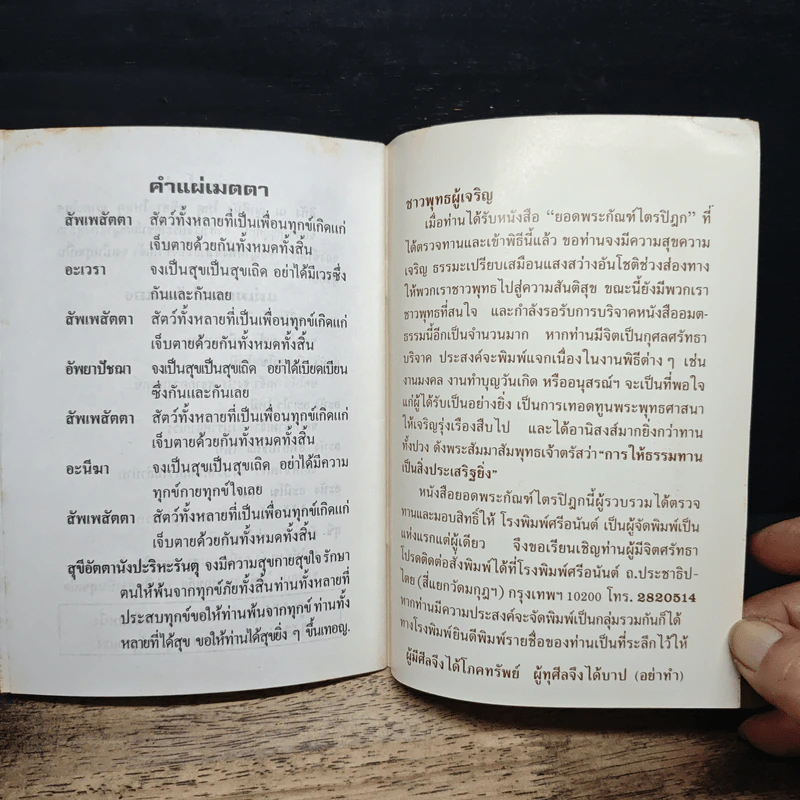 คำแผ่เมตตา
สัพเพสัตตา สัตว์ทั้งหลายที่เป็นเพื่อนทุกข์เกิดแก่
เจ็บตายด้วยกันทั้งหมดทั้งสิ้น
อะเวรา จงเป็นสุขเป็นสุขเถิด อย่าได้มีเวรซึ่ง
กันและกันเลย
สัพเพสัตตา สัตว์ทั้งหลายที่เป็นเพื่อนทุกข์เกิดแก่
เจ็บตายด้วยกันทั้งหมดทั้งสิ้น
อัพยาปัชฌา จงเป็นสุขเป็นสุขเถิด อย่าได้เบียดเบียน
ซึ่งกันและกันเลย
สัพเพสัตตา สัตว์ทั้งหลายที่เป็นเพื่อนทุกข์เกิดแก่
เจ็บตายด้วยกันทั้งหมดทั้งสิ้น
อะนีฆา จงเป็นสุขเป็นสุขเถิด อย่าได้มีความ
ทุกข์กายทุกข์ใจเลย
สัพเพสัตตา สัตว์ทั้งหลายที่เป็นเพื่อนทุกข์เกิดแก่
เจ็บตายด้วยกันทั้งหมดทั้งสิ้น
สุขีอัตตานังปะริหะรันตุ จงมีความสุขกายสุขใจ รักษา
ตนให้พ้นจากทุกข์ภัยทั้งสิ้นท่านทั้งหลายที่
ประสบทุกข์ขอให้ท่านพ้นจากทุกข์ ท่านทั้ง
หลายที่ได้สุข ขอให้ท่านได้สุขยิ่ง ๆ ขึ้นเทอญ.
ชาวพุทธผู้เจริญ
เมื่อท่านได้รับหนังสือ “ยอดพระกัณฑ์ไตรปิฎก” ที่
ได้ตรวจทานและเข้าพิธีนี้แล้ว ขอท่านจงมีความสุขความ
เจริญ ธรรมะเปรียบเสมือนแสงสว่างอันโชติช่วงส่องทาง
ให้พวกเราชาวพุทธไปสู่ความสันติสุข ขณะนี้ยังมีพวกเรา
ชาวพุทธที่สนใจ และกำลังรอรับการบริจาคหนังสืออมต-
ธรรมนี้อีกเป็นจำนวนมาก หากท่านมีจิตเป็นกุศลศรัทธา
บริจาค ประสงค์จะพิมพ์แจกเนื่องในงานพิธีต่าง ๆ เช่น
งานมงคล งานทำบุญวันเกิด หรืออนุสรณ์ฯ จะเป็นที่พอใจ
แก่ผู้ได้รับเป็นอย่างยิ่ง เป็นการเทอดทูนพระพุทธศาสนา
ให้เจริญรุ่งเรืองสืบไป และได้อานิสงส์มากยิ่งกว่าทาน
ทั้งปวง ดังพระสัมมาสัมพุทธเจ้าตรัสว่า “การให้ธรรมทาน
เป็นสิ่งประเสริฐยิ่ง”
หนังสือยอดพระกัณฑ์ไตรปิฎกนี้ผู้รวบรวมได้ตรวจ
ทานและมอบสิทธิ์ให้ โรงพิมพ์ศรีอนันต์ เป็นผู้จัดพิมพ์เป็น
แห่งแรกแต่ผู้เดียว จึงขอเรียนเชิญท่านผู้มีจิตศรัทธา
โปรดติดต่อสั่งพิมพ์ได้ที่โรงพิมพ์ศรีอนันต์ ถ.ประชาธิป-
ไตย (สี่แยกวัดมกุฎฯ) กรุงเทพฯ 10200 โทร. 2820514
หากท่านมีความประสงค์จะจัดพิมพ์เป็นกลุ่มรวมกันก็ได้
ทางโรงพิมพ์ยินดีพิมพ์รายชื่อของท่านเป็นที่ระลึกไว้ให้
ผู้มีศีลจึงได้โภคทรัพย์ ผู้ทุศีลจึงได้บาป (อย่าทำ)